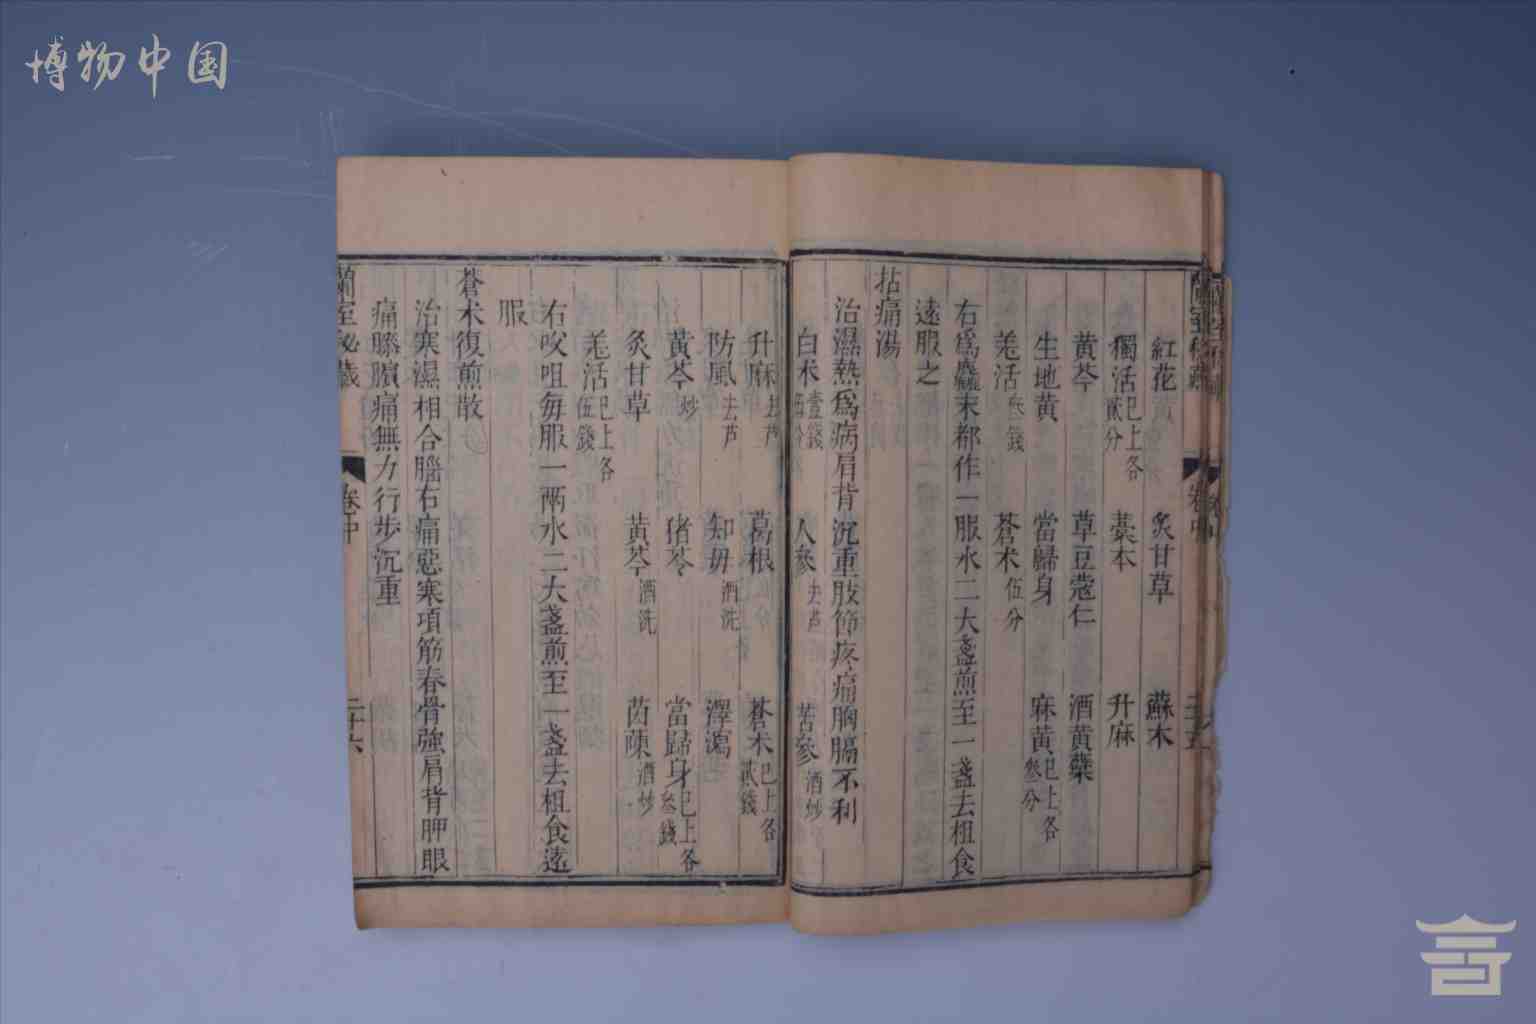 博物中国
紅花 炙甘草 蘇木
獨活已上各貳分 藁本 升麻
黃芩 草豆蔻仁 酒黃蘗
生地黃 當歸身 麻黃已上各叄分
羌活叄錢 蒼朮伍分
右爲麤末都作一服水二大盞煎至一盞去柤食
遠服之
拈痛湯
治濕熱爲病肩背沉重肢節疼痛胸膈不利
白朮壹錢伍分 人參去芦 苦參酒炒
升麻去芦 葛根 蒼朮已上各貳錢
防風去芦 知毋酒洗 澤瀉
黃芩炒 猪苓 當歸身已上各叄錢
炙甘草 黃芩酒洗 茵蔯酒炒
羌活已上各伍錢
右㕮咀每服一兩水二大盞煎至一盞去柤食遠
服
蒼朮復煎散
治寒濕相合腦右痛惡寒項筋春骨強肩背胛眼
痛膝臏痛無力行步沉重
蘭室秘藏 卷中 二十六